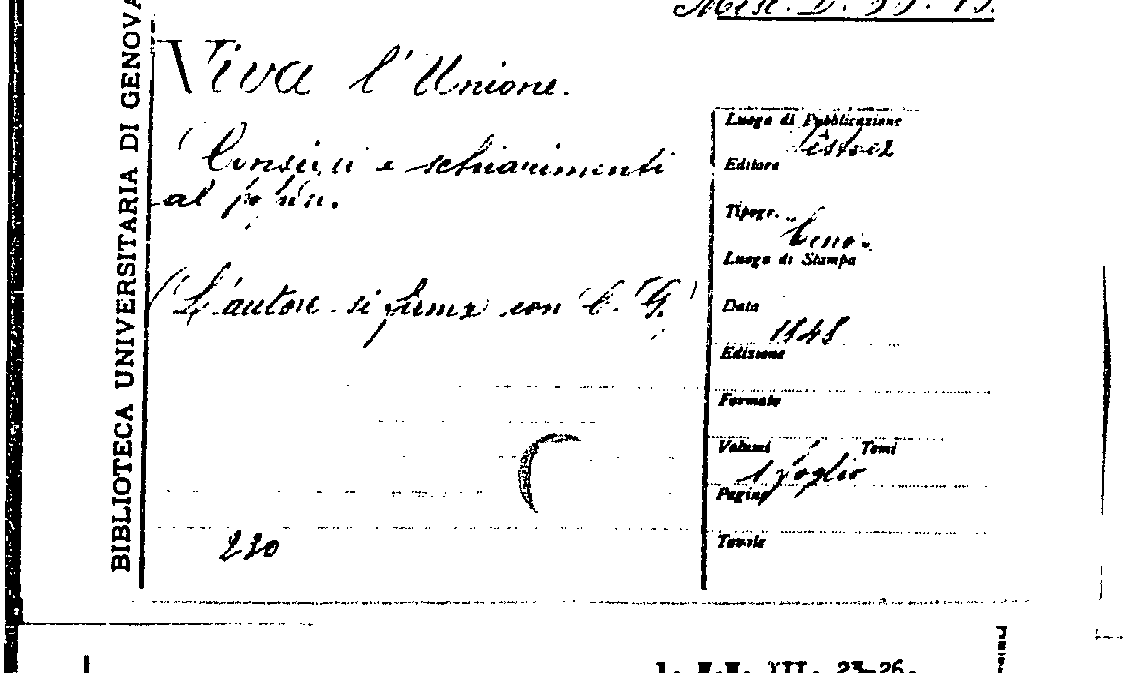 BIBLIOTECA UNIVERSITARIA DI GENOVA
Misc. D.
Viva l'Unione.
e schiarimenti
al
(L'autore si firma con C. G.)
230
Luogo di Pubblicazione
Editore
Tipogr.
Luogo di Stampa
Data
1848
Edizione
Formato
Volumi Tomi
1 foglio
Pagine
Tavole
23-26.